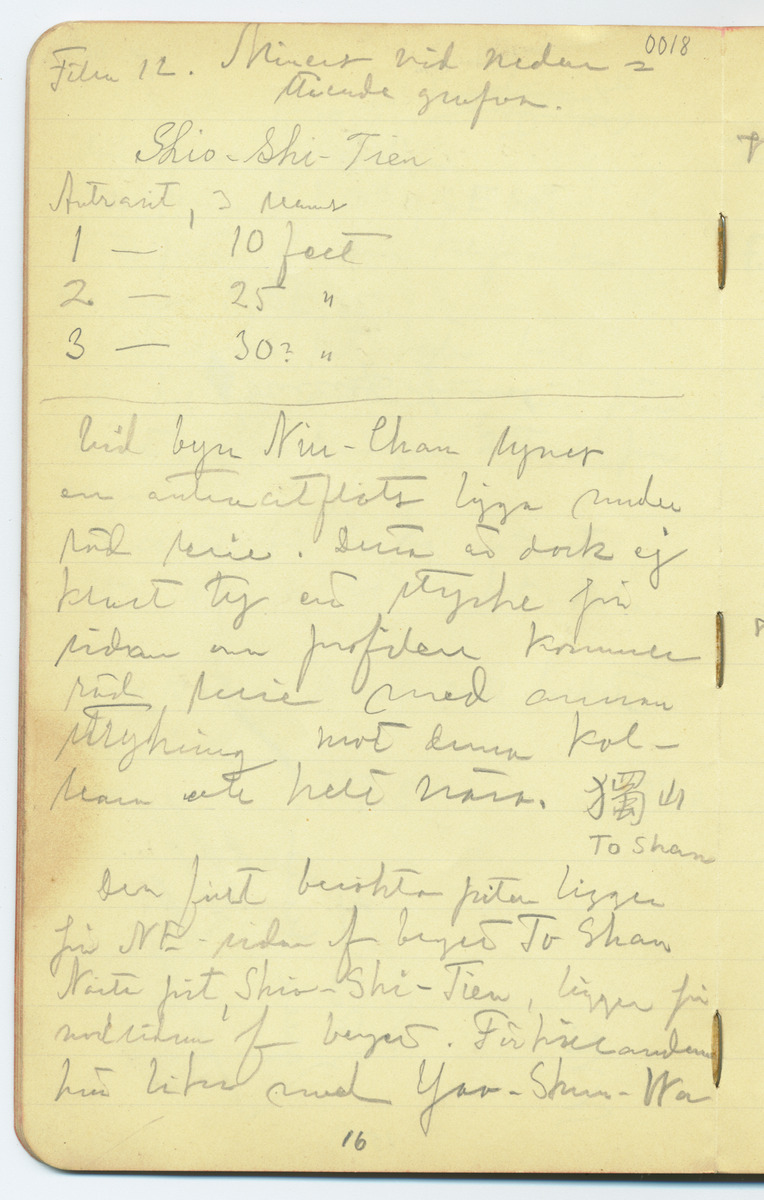 0018
Film 12. Miners vid nedan=
stående grufva.
Shio-Shi-Tien
Antrasit, 3 seams
1 — 10 feet
2 — 25 "
3 — 30? "
Vid byn Niu-Chan synes
en antracitflöts ligga under
röd serie. Detta är dock ej
sant ty ett stycke på
sidan om profilen kommer
röd serie med annan
strykning mot denna kol-
seam helt nära. 獨山
To Shan
Den först besökta piten ligger
på NE-sidan af berget To Shan
Nästa pit, Shio-Shi-Tien, ligger på
nordsidan af berget. Förhållandena
här lika med Yao-Shun-Wa
16